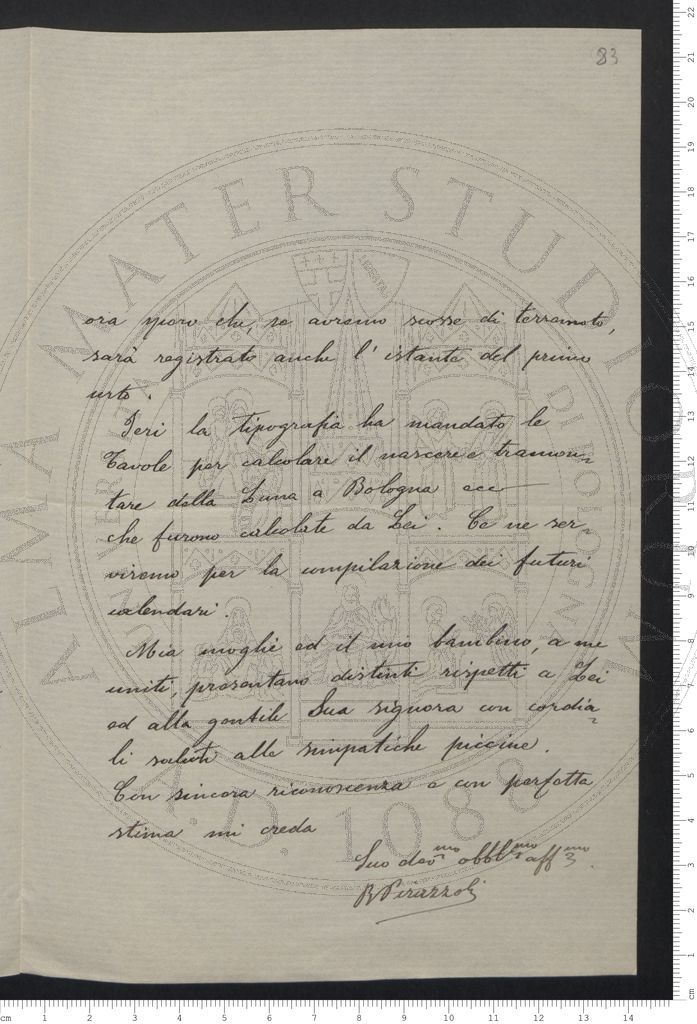 83
ora spero che, se avremo scosse di terremoto,
sarà registrato anche l'istante del primo
urto.
Ieri la tipografia ha mandato le
Tavole per calcolare il nascere e tramon-
tare della Luna a Bologna ecc
che furono calcolate da Lei. Ce ne ser-
viremo per la compilazione dei futuri
calendari.
Mia moglie ed il mio bambino, a me
uniti, presentano distinti rispetti a Lei
ed alla gentile Sua signora con cordia-
li saluti alle simpatiche piccine.
Con sincera riconoscenza e con perfetta
stima mi creda
Suo devmo obblmo affmo.
R Pirazzoli
ALMA MATER STUDIORUM
A.D. 1088